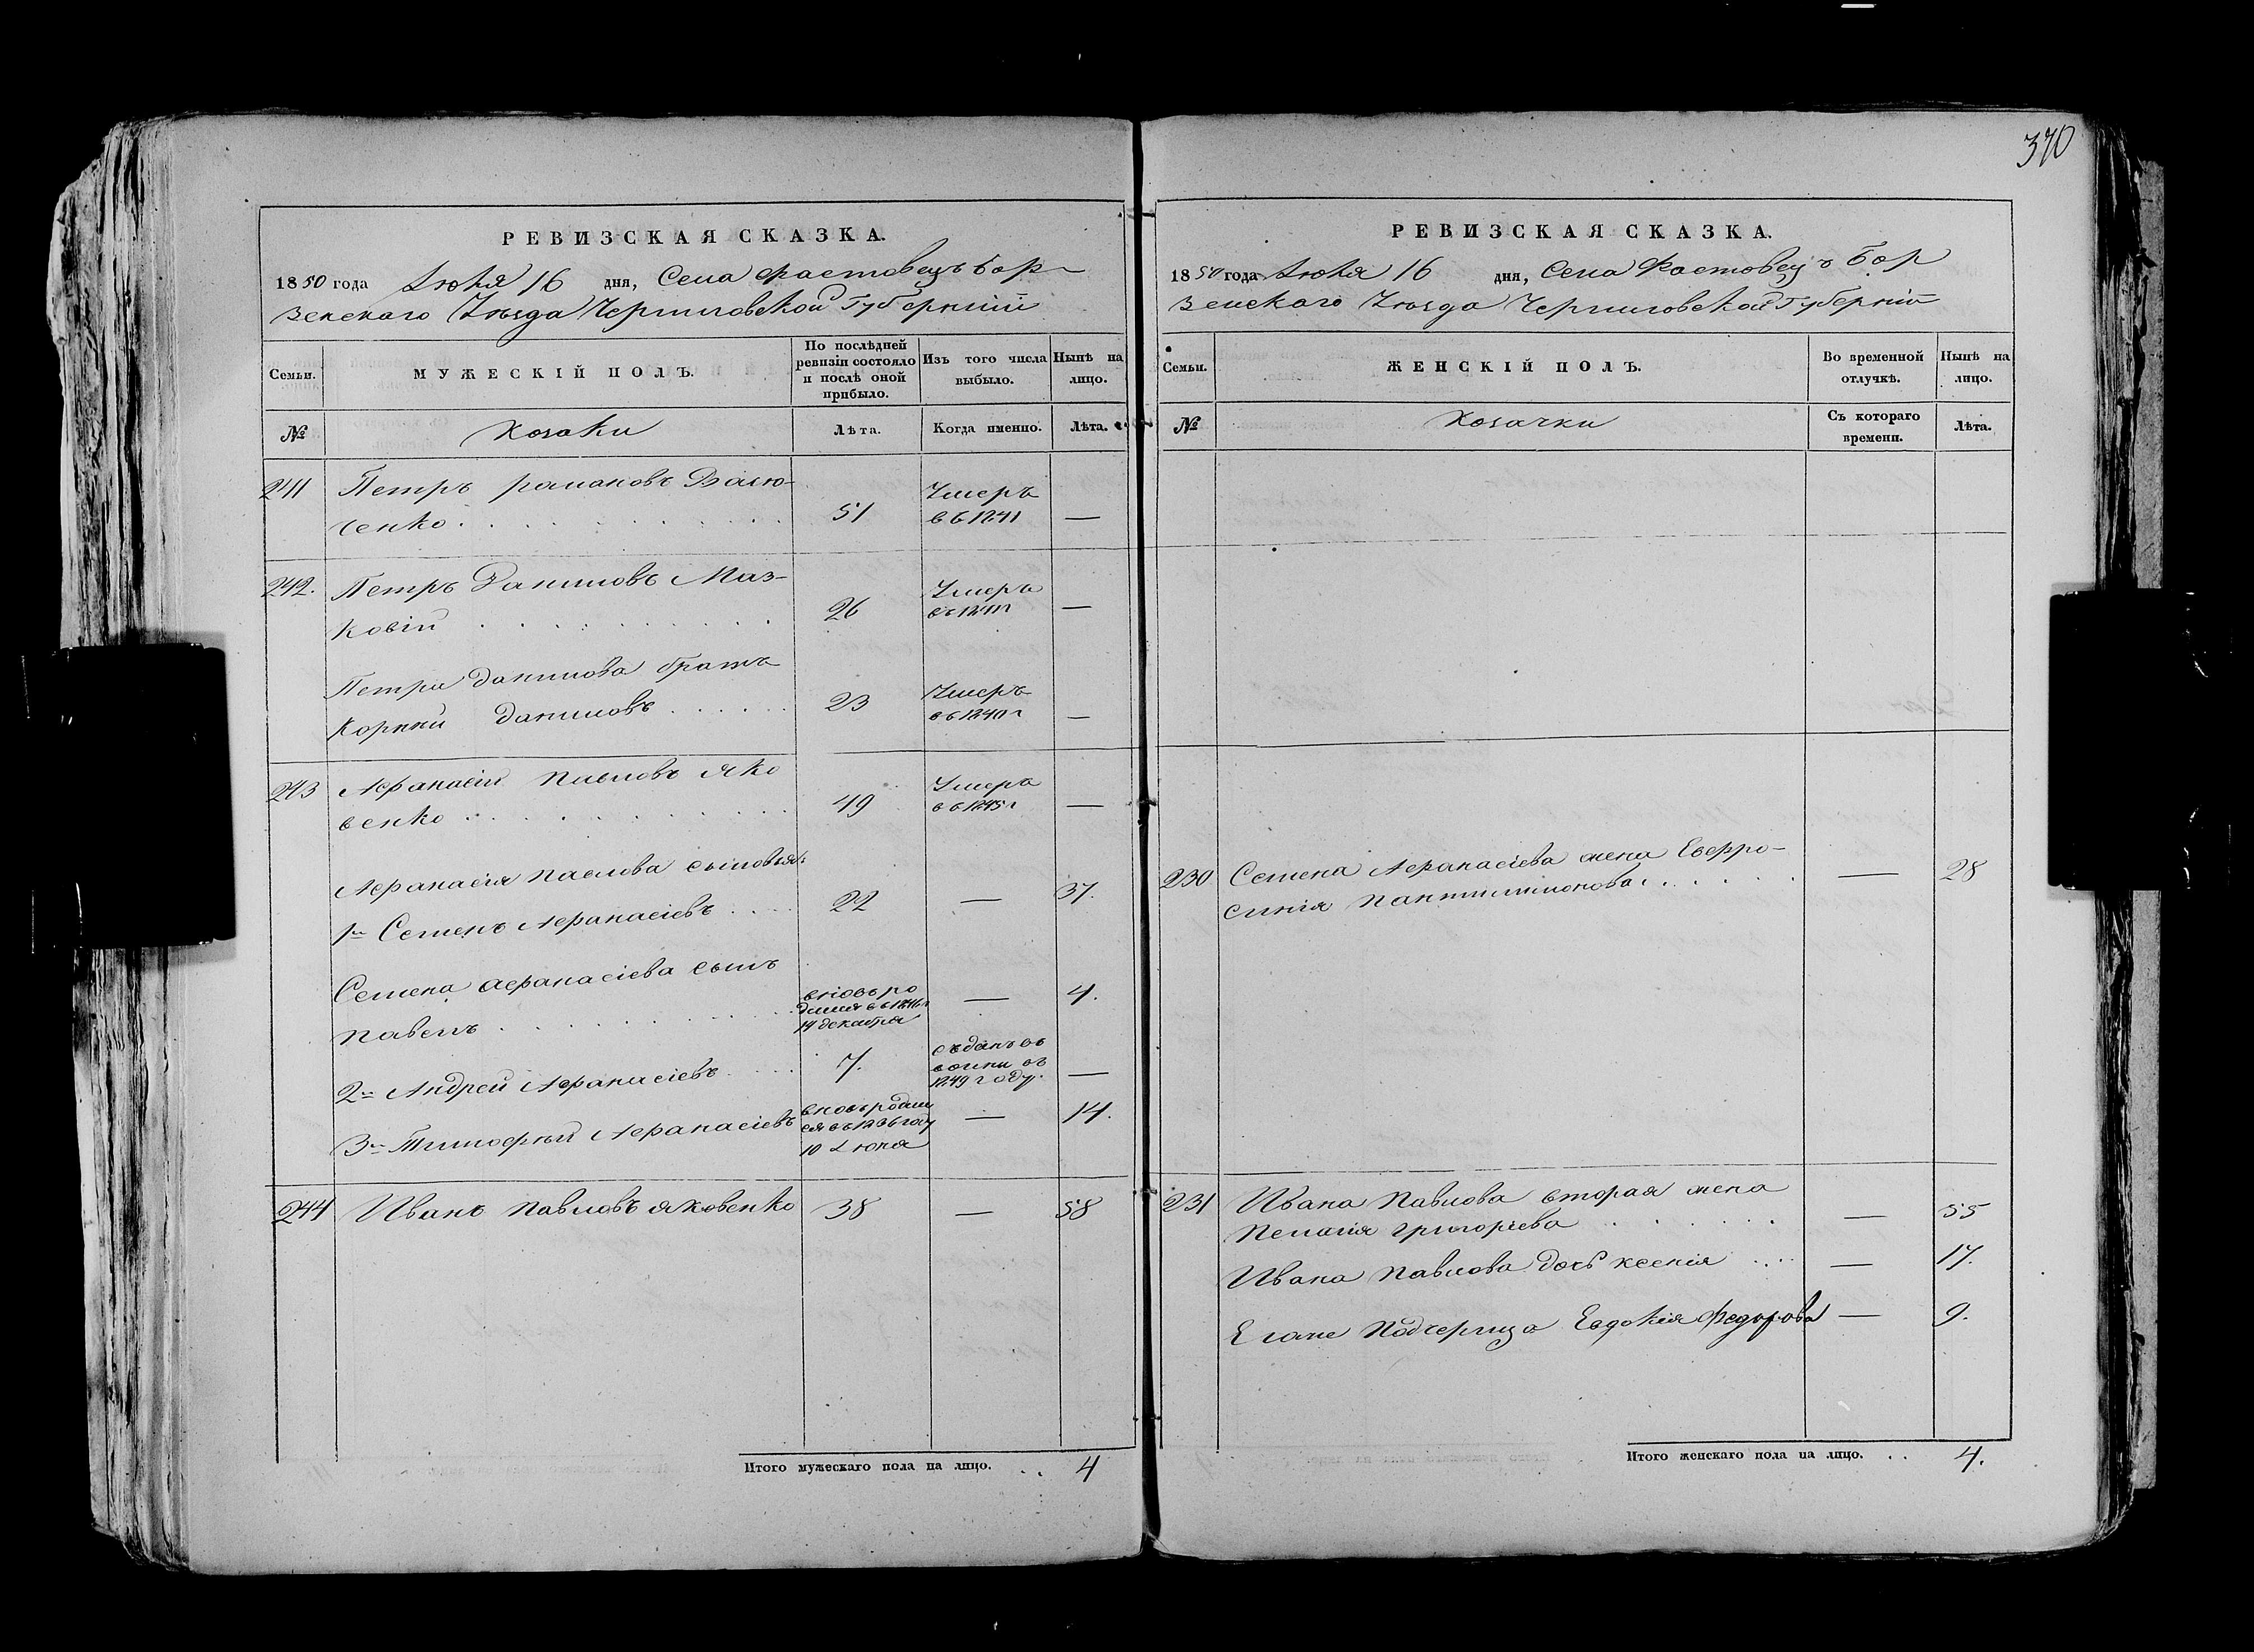 370
РЕВИЗСКАЯ СКАЗКА.
1850 года Июля 16 дня, Села Фастовецъ Бор-
зенского Уѣзда Черниговской Губерніи
Семьи.
МУЖЕСКІЙ ПОЛЪ.
По послѣдней ревизіи состояло и послѣ оной прибыло.
Изъ того числа выбыло.
Нынѣ на лицо.
№
Козаки
Лѣта.
Когда именно.
Лѣта.
241 Петръ Романовъ
сенко 51 Умеръ въ 1841 —
242. Петръ Даниловъ Маз-
ковій 26 Умеръ въ 1841 г —
Петра Данилова братъ
Корній Даниловъ 23 Умеръ въ 1840 г —
243 Афанасій Павловъ Яко
венко 49 Умеръ въ 1845 г —
Афанасія Павлова сыновья
1й Семенъ Афанасіевъ 22 — 37.
Семена Афанасіева сынъ
Павелъ вновь ро дился въ 1846 г 19 декабря — 4.
2й Андрей Афанасіевъ 7. въ 1849 году. —
3й Тимофей Афанасіевъ вновь родил ся въ 1836 году 10 Июня — 14.
244 Иванъ Павловъ Яковенко 38 — 58
Итого мужескаго пола на лицо. . . 4
РЕВИЗСКАЯ СКАЗКА.
1850 года Июля 16 дня, Села Фастовецъ Бор
зенскаго Уѣзда Черниговской Губерніи
Семьи.
ЖЕНСКІЙ ПОЛЪ.
Во временной отлучкѣ.
Нынѣ на лицо.
№
Козачки
Съ котораго времени.
Лѣта.
230 Семена Афанасіева жена Евфро-
синія Пантилимонова — 28
231 Ивана Павлова вторая жена
Пелагія Григоріева — 55
Ивана Павлова дочь Ксенія — 17.
Его же Падчерица Евдокія Федорова — 9.
Итого женскаго пола на лицо. . . 4.